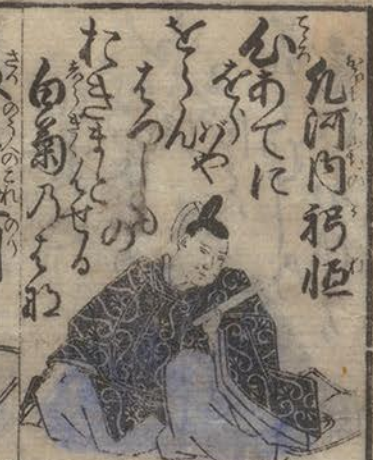 凡河内躬恒
心あてに
をらばや
をらん
はつしもの
おきまどはせる
白菊乃はな